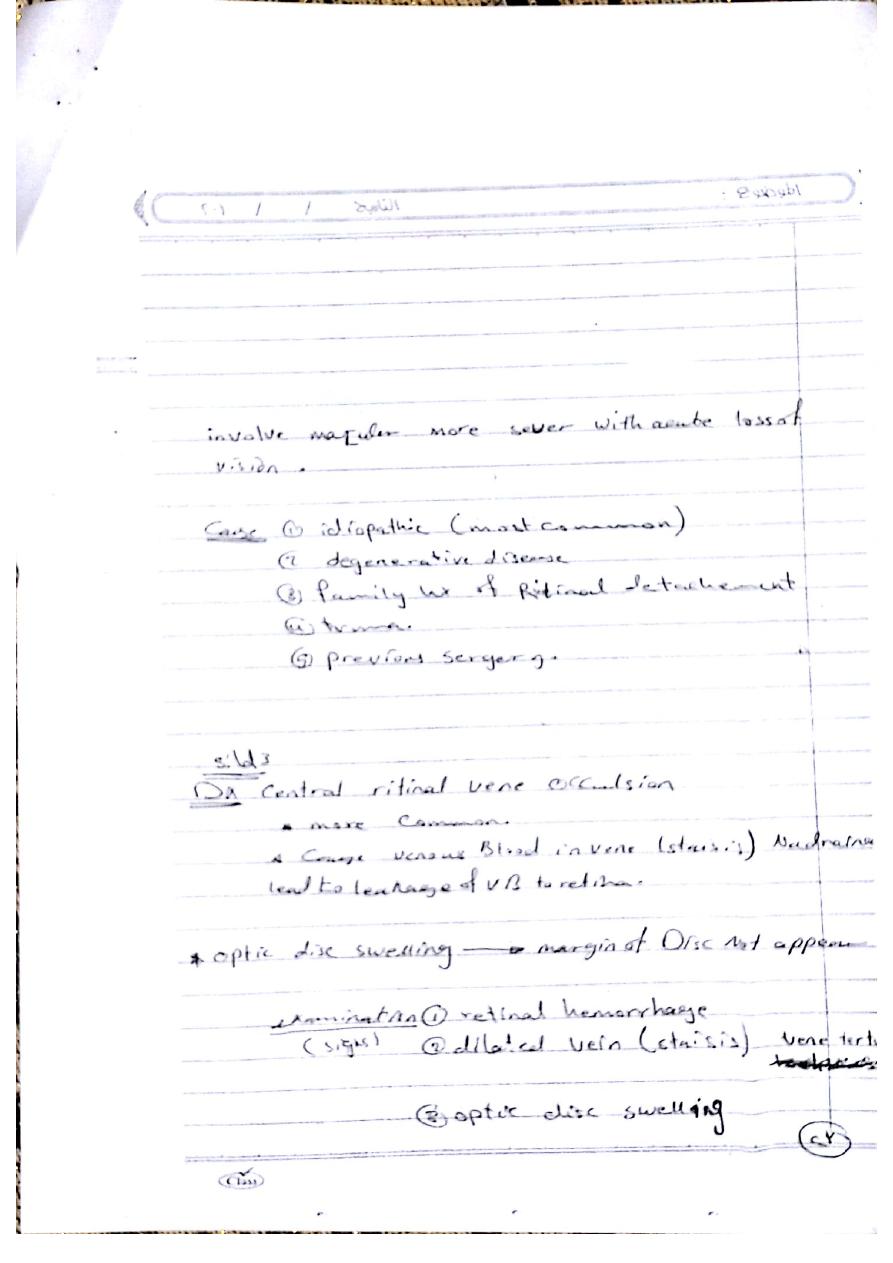 الموضوع :
التاريخ / / ٢٠١
involve maculer more sever with acute loss of
vision .
Cause ① idiopathic (most common)
② degenerative disease
③ family hx of Ritinal detachement
④ truma.
⑤ previous sergery.
slid 3
Dx Central ritinal vene occulsion
* more Common.
* Cause venous Blood in vene (stasis) No draina
lead to leakage of VB to retina.
* optic disc swelling → margin of Disc Not appear
examination ① retinal hemorrhage
(signs) ② dilated vein (staisis) vene tort
③ optic disc swelling